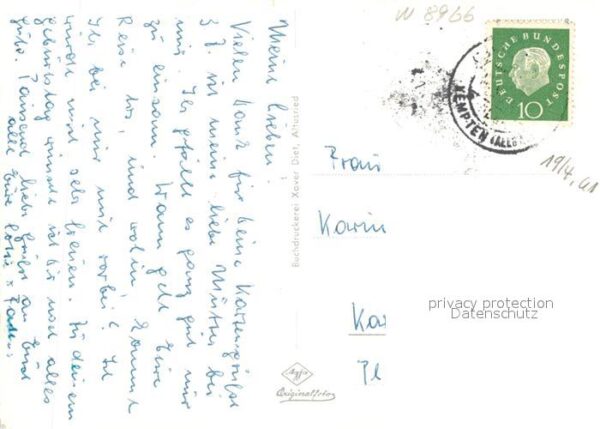 Meine Lieben!
Vielen Dank für deine Kartengrüße
z. Z. ist meine liebe Mutter bei
mir. Ihr gefällt es ganz gut nur
zu einsam. Wann geht Eure
Reise los, und wohin kommt
Ihr bei mir mit vorbei? Ich
würde mich sehr freuen. Zu deinem
Geburtstag wünsche ich dir noch alles
Gute. Tausend liebe Grüße an Euch
alle Eure
Buchdruckerei Xaver Diet, Altusried
1
W 8966
DEUTSCHE BUNDESPOST
10
KEMPTEN (ALLG
19/4. 61
Frau
Karin
Ka
Pl
privacy protection
Datenschutz
Agfa
Originalfoto